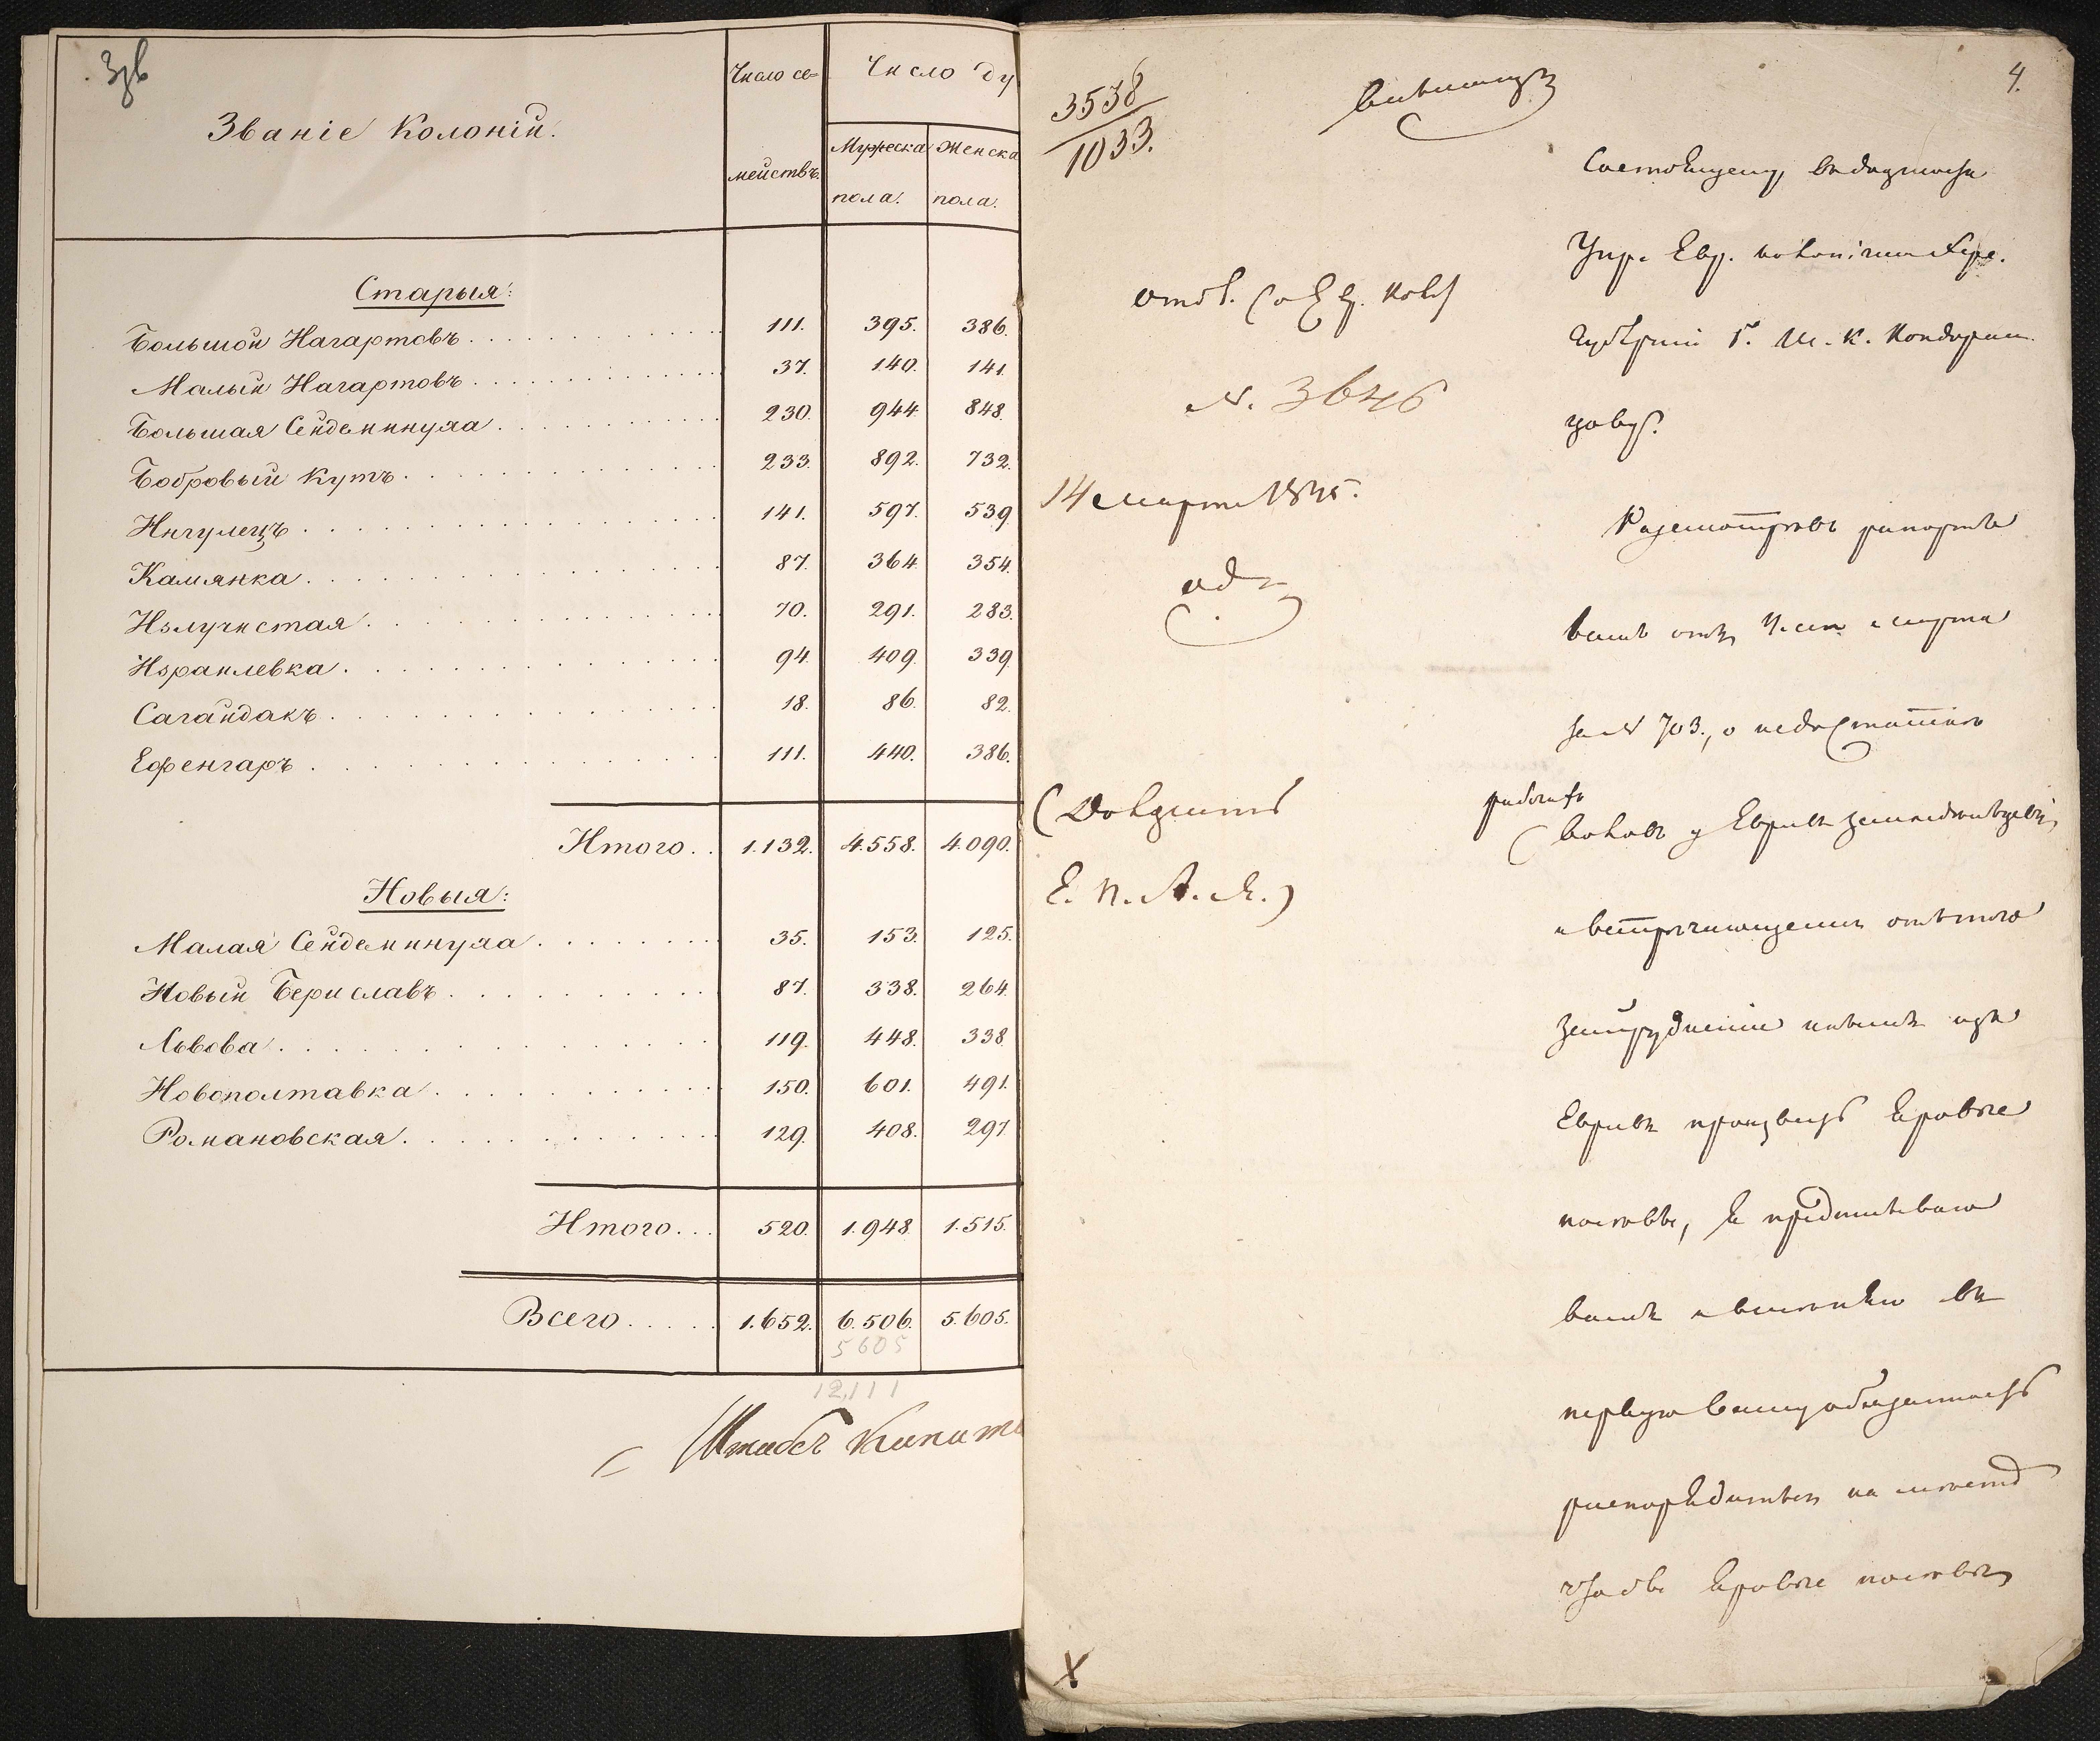 Званіе Колоній.
Число се=
мействъ.
Число ду
Мужеска
пола.
Женска
пола.
Старыя:
Большой Нагартовъ 111. 395. 386.
Малый Нагартовъ 37. 140. 141.
Большая Сейдеминуха 230. 944. 848.
Бобровый Кутъ 233. 892. 732.
Ингулецъ 141. 597. 539
Камянка 87. 364. 354.
Излучистая 70. 291. 283.
Израилевка 94. 409. 339.
Сагайдакъ 18. 86. 82.
Ефенгаръ 111. 440. 386.
Итого 1.132. 4.558. 4.090.
Новыя:
Малая Сейдеминуха 35. 153. 125.
Новый Бериславъ 87. 338. 264.
Львова 119. 448. 338.
Новополтавка 150. 601. 491.
Романовская 129. 408. 297
Итого 520. 1.948. 1.515.
Всего 1.652. 6.506. 5.605.
5605
12,111
Штабсъ Капита
4.
3538
1033.
Состоящему въ должности
Упр. Евр. колоніями Хер.
Губерніи Г. Ш. К. Кондарац
цову.
отд. (о Евр. Кол)
N. 3646
14 Марта 1845.
Разсмотрѣвъ рапортъ
вашъ отъ марта
за N 703., о недостаткѣ
рабочихъ
воловъ у Евреевъ земледѣльцевъ
и встрѣчающемся отъ того
затрудненіи
Евреевъ яровые
посѣвы, я предписываю
вамъ въ
первую вашу обязанность
распорядиться на мѣстѣ
чтобы яровые посѣвы